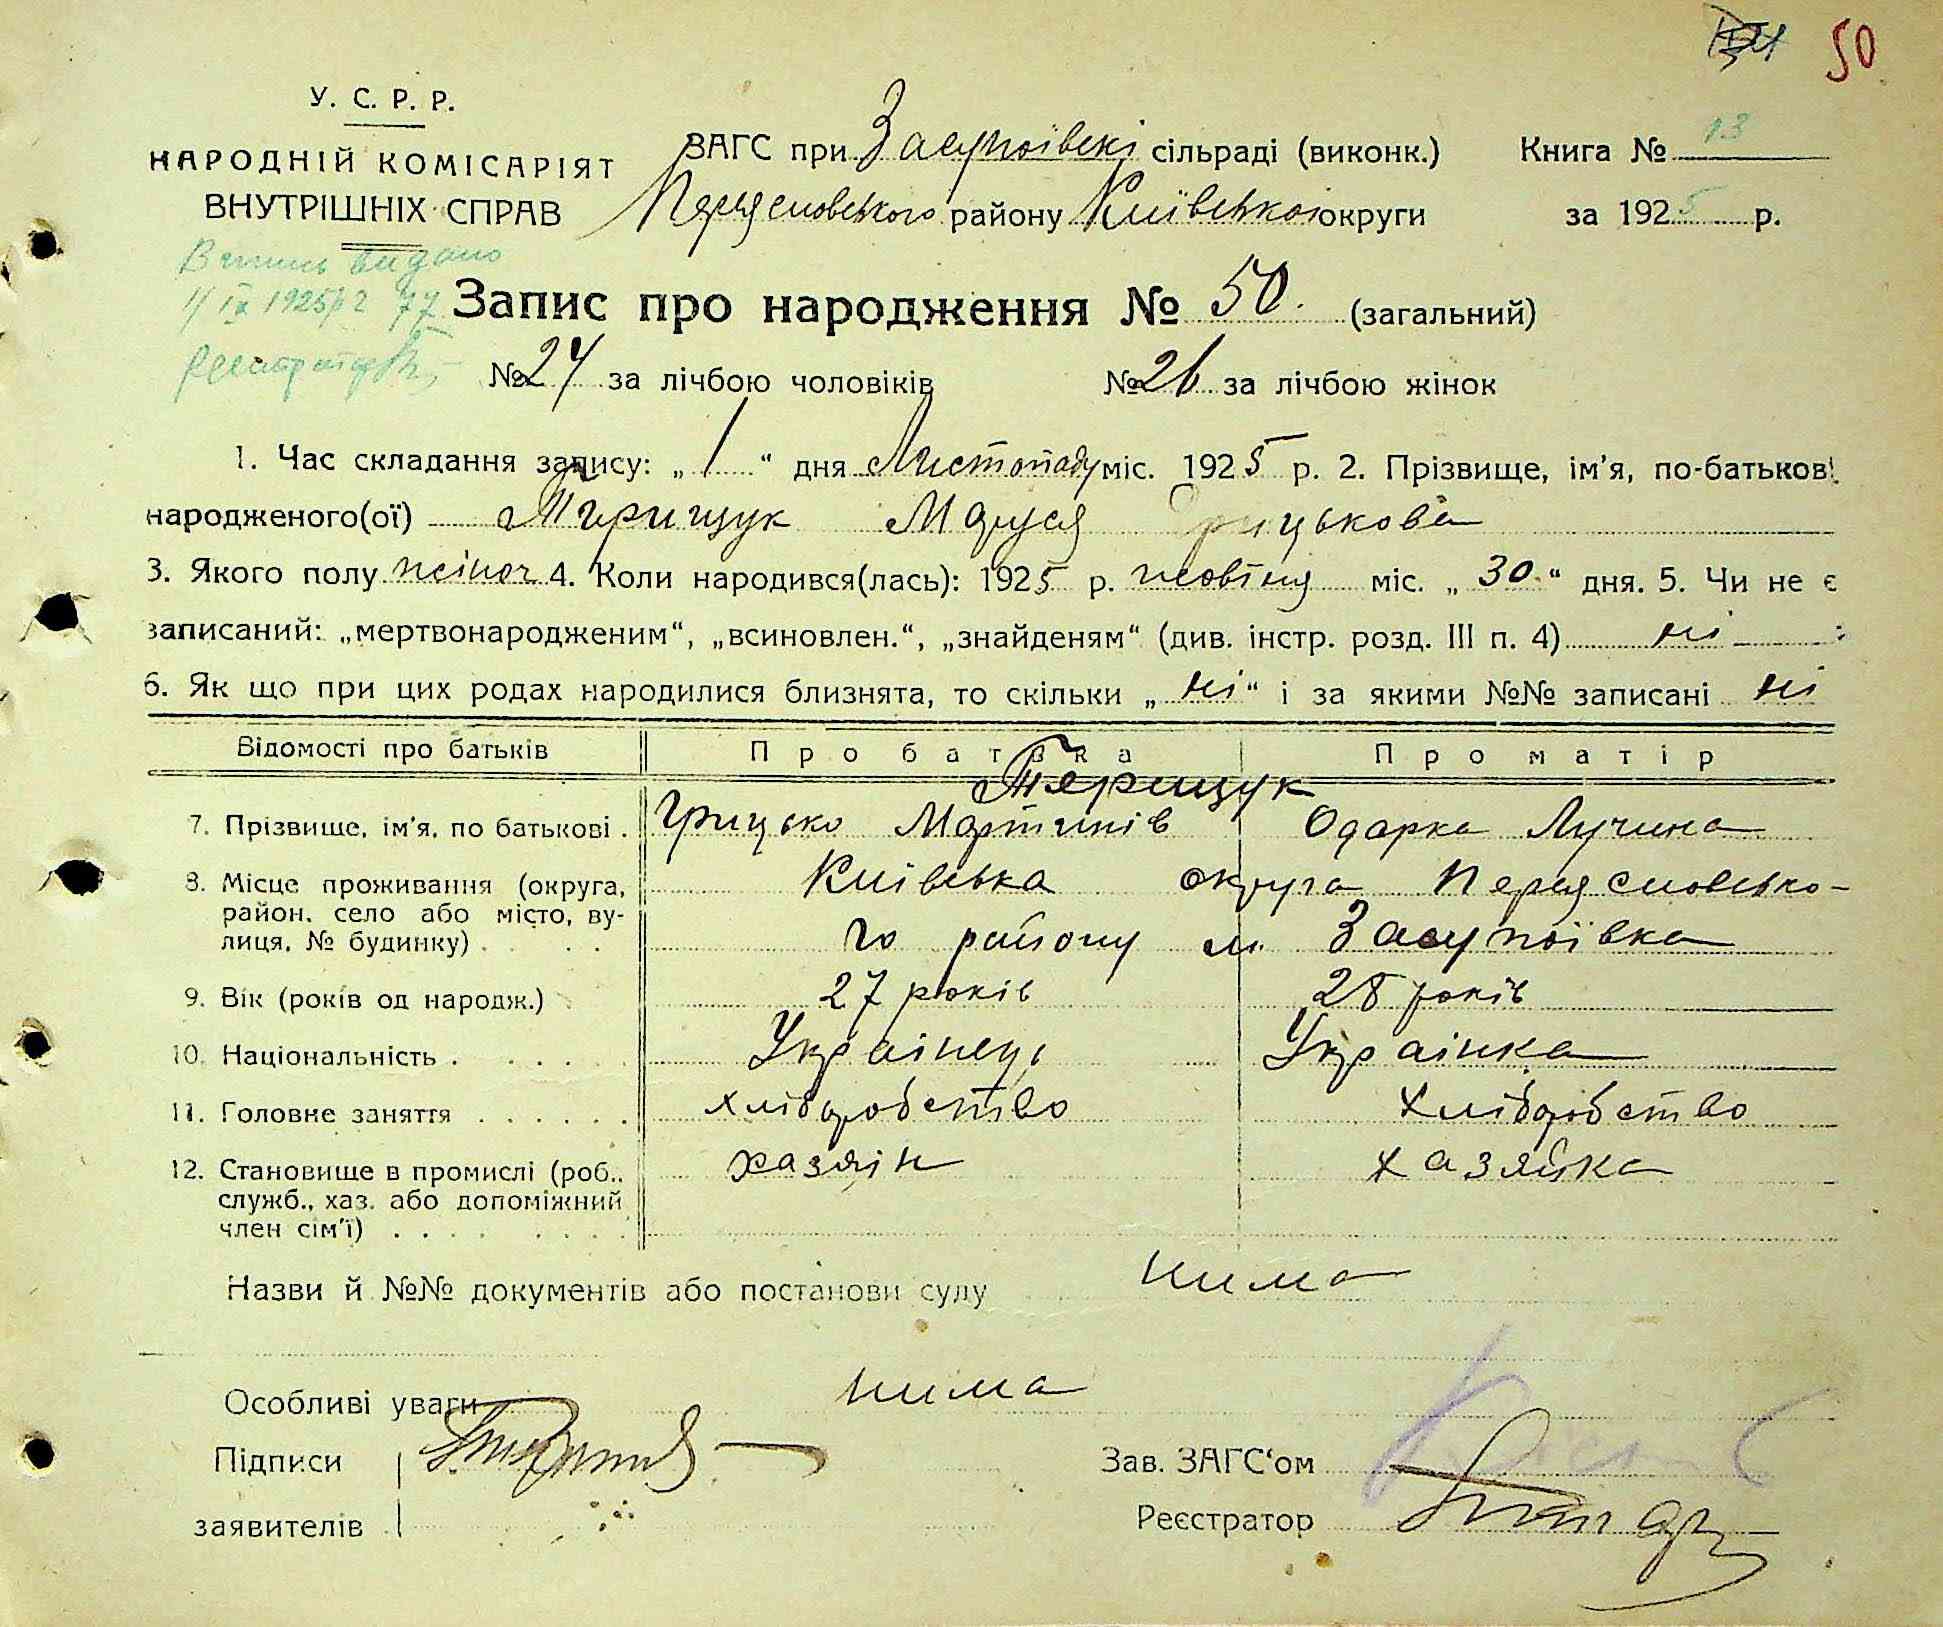 50
У. С. Р. Р.
НАРОДНІЙ КОМІСАРІЯТ
ВНУТРІШНІХ СПРАВ
ЗАГС при Засупоївскі сільраді (виконк.)
Переясловського району Київської округи
Книга № 13
за 1925 р.
видано
1/IX 1925 р 2 77
Запис про народження № 50. (загальний)
№ 24 за лічбою чоловіків № 26 за лічбою жінок
1. Час складання запису: „ 1 “ дня Листопаду міс. 1925 р. 2. Прізвище, ім'я, по-батькові
народженого(ої) Терищук Маруся Грицькова
3. Якого полу жіноч 4. Коли народився(лась): 1925 р. жовтня міс. „ 30 “ дня. 5. Чи не є
записаний: „мертвонародженим“, „всиновлен.“, „знайденям“ (див. інстр. розд. III п. 4) ні
6. Як що при цих родах народилися близнята, то скільки „ ні “ і за якими №№ записані ні
Відомості про батьків Про батька Про матір
Терищук
7. Прізвище, ім'я, по батькові . Грицько Мартинів Одарка Лучина
8. Місце проживання (округа, Київська округа Переясловсько-
район, село або місто, ву-
лиця, № будинку) . го району м. Засупоївка
9. Вік (років од народж.) 27 років 28 років
10. Національність . Українець Українка
11. Головне заняття . хліборобство хліборобство
12. Становище в промислі (роб., хазяїн хазяйка
служб., хаз. або допоміжний
член сім'ї) .
Назви й №№ документів або постанови суду нима
Особливі уваги нима
Підписи
заявителів
Зав. ЗАГС‘ом
Реєстратор